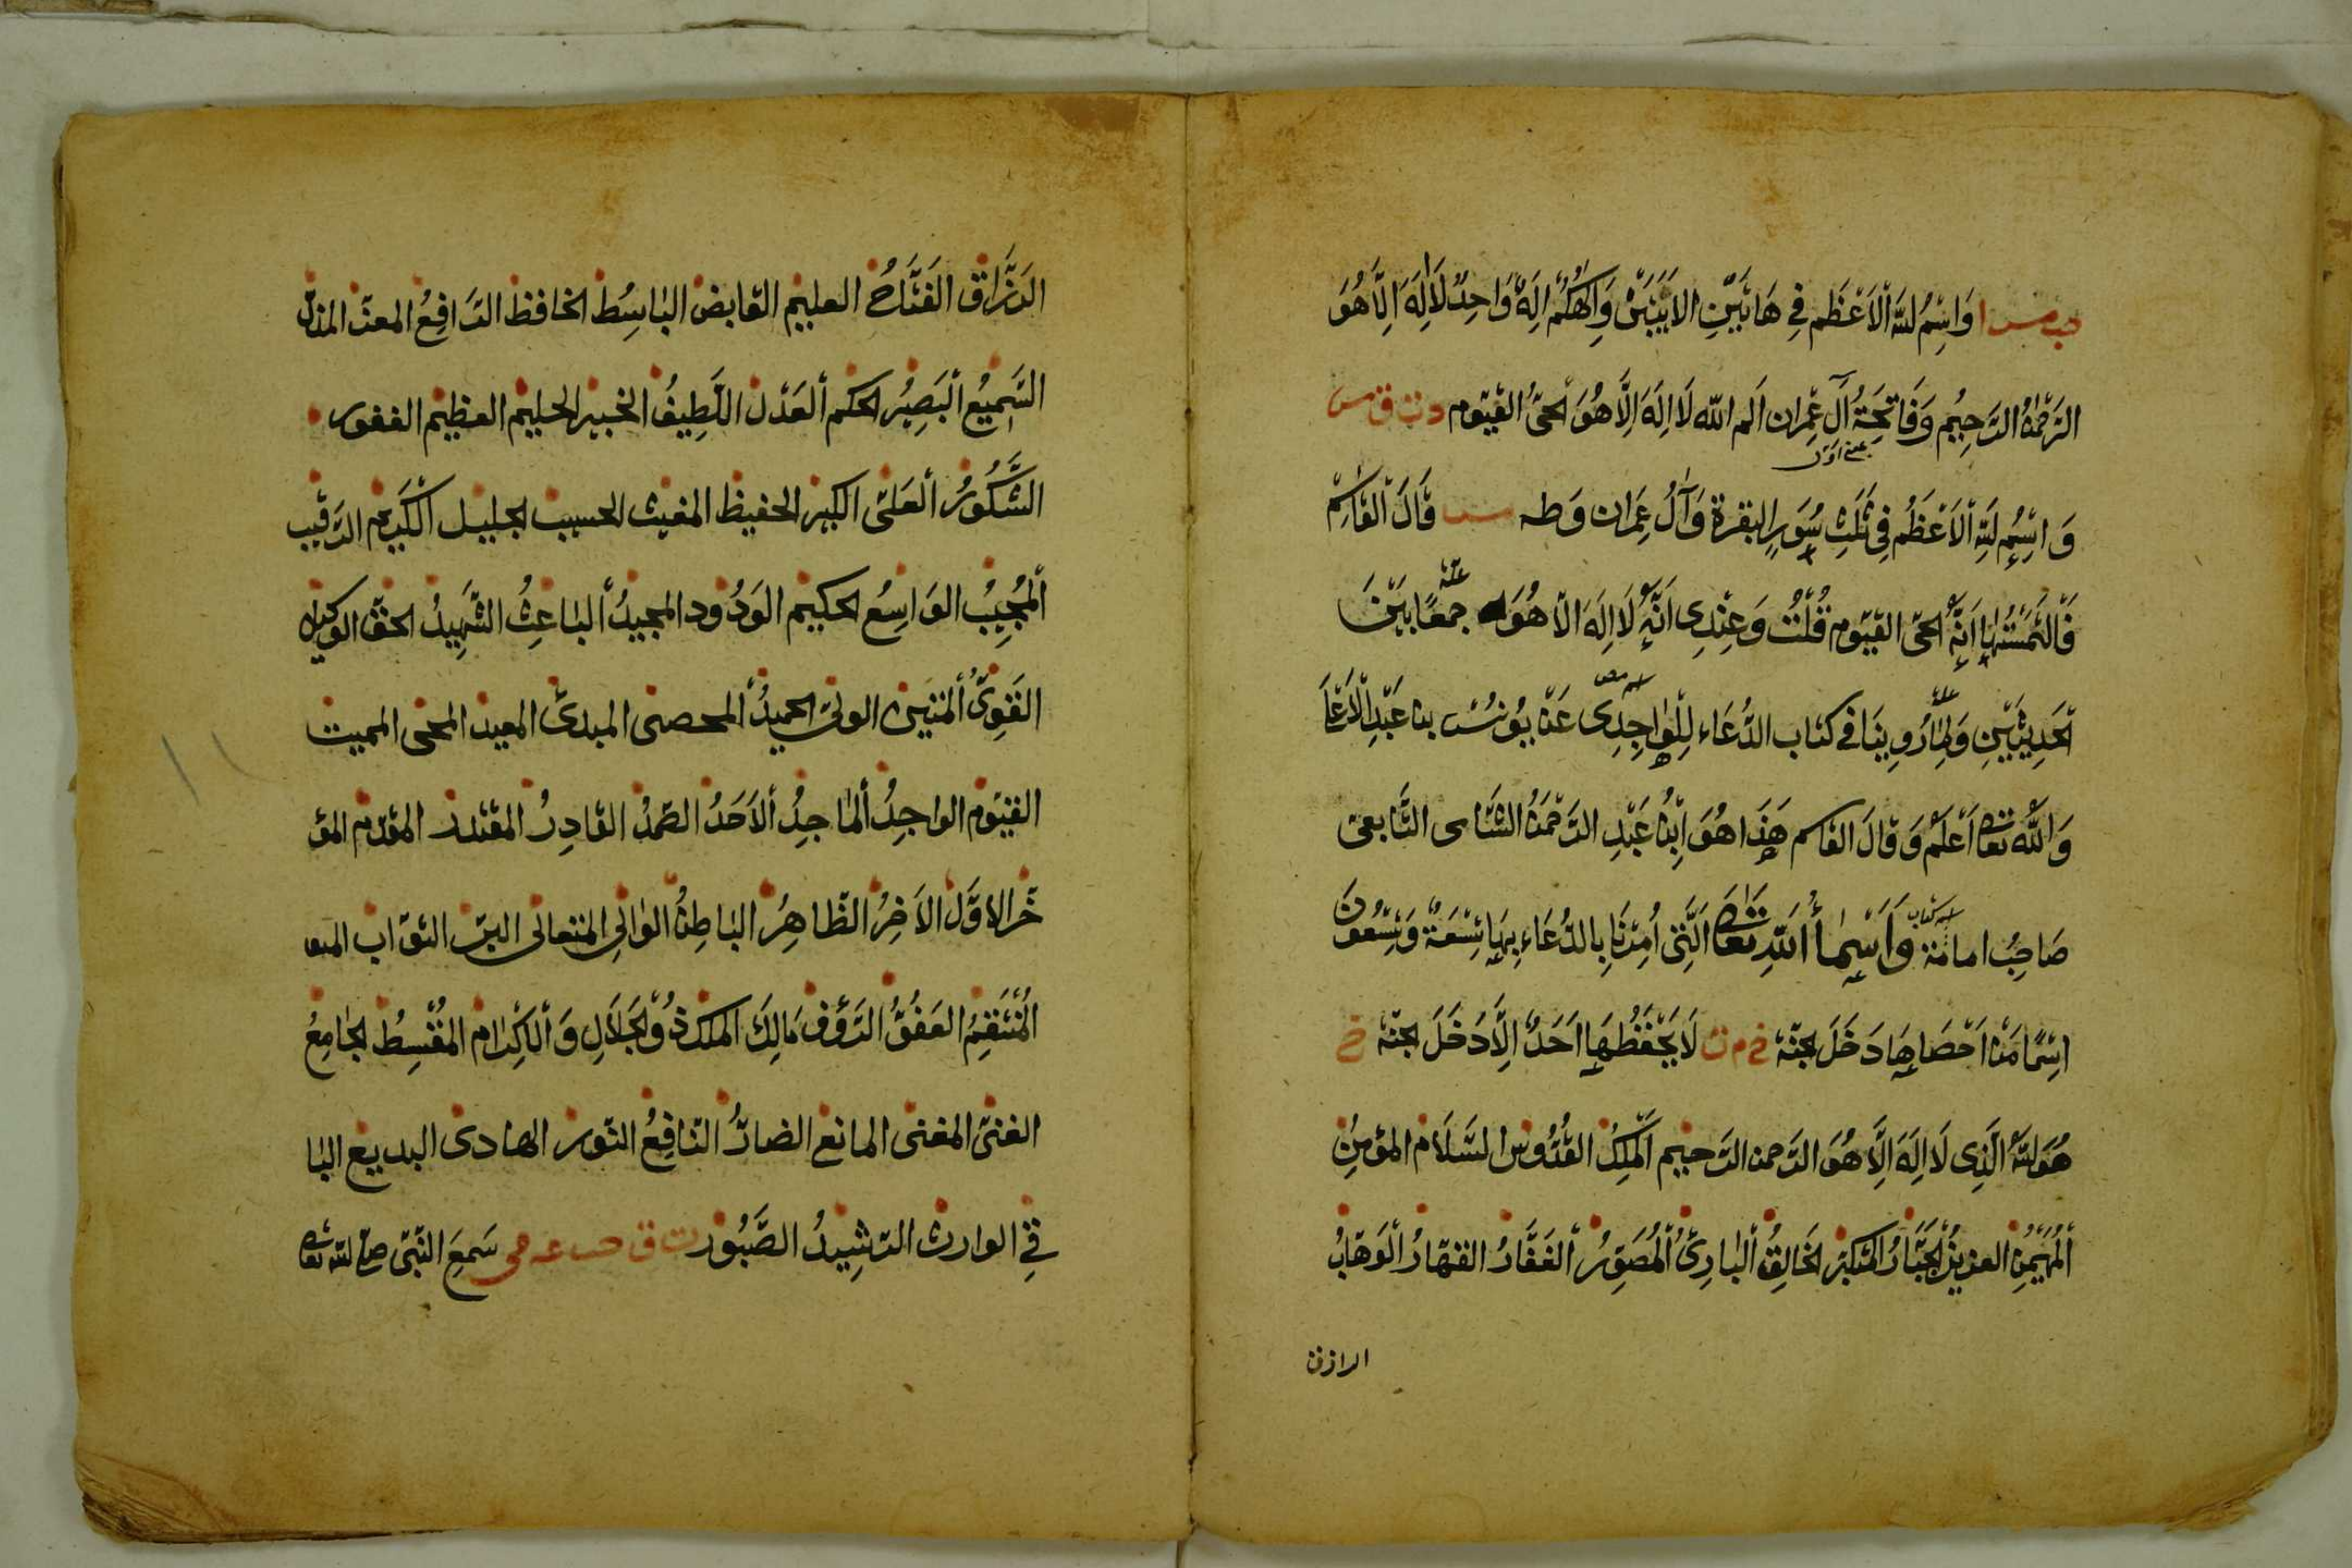 حب مس ا وَاسْمُ للّٰهِ الْاَعْظَم فِي هَاتَيْنِ الاٰيَتَيْنِ وَاِلٰهُكُمْ اِلٰهٌ وَاحِدٌ لَا اِلٰهَ اِلَّا هُوَ
الرَّحْمٰنُ الرَّحِيْم وَفَاتِحَةُ آلِ عِمْرَان الم اللّٰه لَا اِلٰهَ اِلَّا هُوَ الْحَيُّ الْقَيُّوم د ت ق مس
وَ اسْمُ للّٰهِ الْاَعْظَمُ فِي ثَلٰثِ سُوَرٍ البقرة وَآلُ عِمْرَان وَطه مس قَالَ الْقَاسِمُ
فَالْتَمَسْتُهَا اَنَّهُ الحيّ القيّوم قُلْتُ وَعِنْدِي اَنَّهُ لَا اِلٰهَ الّا هُوَ جَمْعًا بَيْنَ
الْحَدِيْثَيْنِ وَلِمَا رُوِينَا في كتاب الدُّعَاء لِلْوَاحِدِي عَنْ يُونُسَ بن عَبْدِ الْاَعْلَى
وَاللّٰهُ تعا اَعْلَمُ وَقَالَ القاسم هٰذَا هُوَ اِبْنُ عَبْدِ الرَّحْمٰنُ الشَّامى التَّابعى
صَاحِبُ امامة وَاَسْمَاءُ اللّٰهِ تعا الَّتِي اُمِرْنَا بِالدُّعَاءِ بِهَا تِسْعَةٌ وَتِسْعُونَ
اسْمًا مَنْ اَحْصَاهَا دَخَلَ الجنّة خ م ت لَا يَحْفَظُهَا اَحَدٌ اِلَّا دَخَلَ الجنّة خ
هُوَ اللّٰهُ الَّذِى لَا اِلٰهَ اِلَّا هُوَ الرَّحمن الرَّحيم الْمَلِكُ القُدُّوسُ السَّلَام المؤمِنُ
الْمُهَيْمِنُ العزيز الْجَبَّارُ المتكبّر الْخَالِقُ الْبَارِئُ الْمُصَوِّرُ الْغَفَّارُ القهّارُ الْوَهّابُ
الرازق
الرَّزَّاق الْفَتَّاحُ العليم القابض البَاسِطُ الخافظ الرَّافِعُ المعزّ المذلّ
السَّمِيْعُ البَصِيْرُ الحكم الْعَدْلُ اللَّطِيفُ الخبير الحليم العظيم الغفور
الشَّكُورُ الْعَلىّ الكبير الحفيظ المغيث الحسيب الجليل الْكَرِيْم الرَّقيب
الْمُجِيْبُ الوَاسِعُ الحكيم الوَدُود المجيدُ الْبَاعِثُ الشَّهِيْدُ الحقّ الوكيل
الْقَوِىُّ الْمَتِيْن الولىّ الحميدُ المحصى المبدئ المعيد المحى المميت
القيّوم الواجِدُ الْمَاجِدُ الْاَحَدُ الصَّمَدُ القَادِرُ المقتدر المقدّم المؤ
خّر الاوَّل الاٰخِرُ الظّاهِرُ البَاطِنُ الوَالِى المتعالى البرّ التوّاب
الْمُنْتَقِمُ العَفُوُّ الرَّؤُف مَالِكُ الملك ذُو الْجَلَالِ وَالْاِكْرَام الْمُقْسِطُ الْجَامِعُ
الغنىّ المغنى المانع الضارُّ النّافِعُ النّور الهادى البديع البا
قِى الوارث الرَّشِيْدُ الصَّبُور ت ق حب سَمِعَ النّبىّ صلّى للّٰه تعا